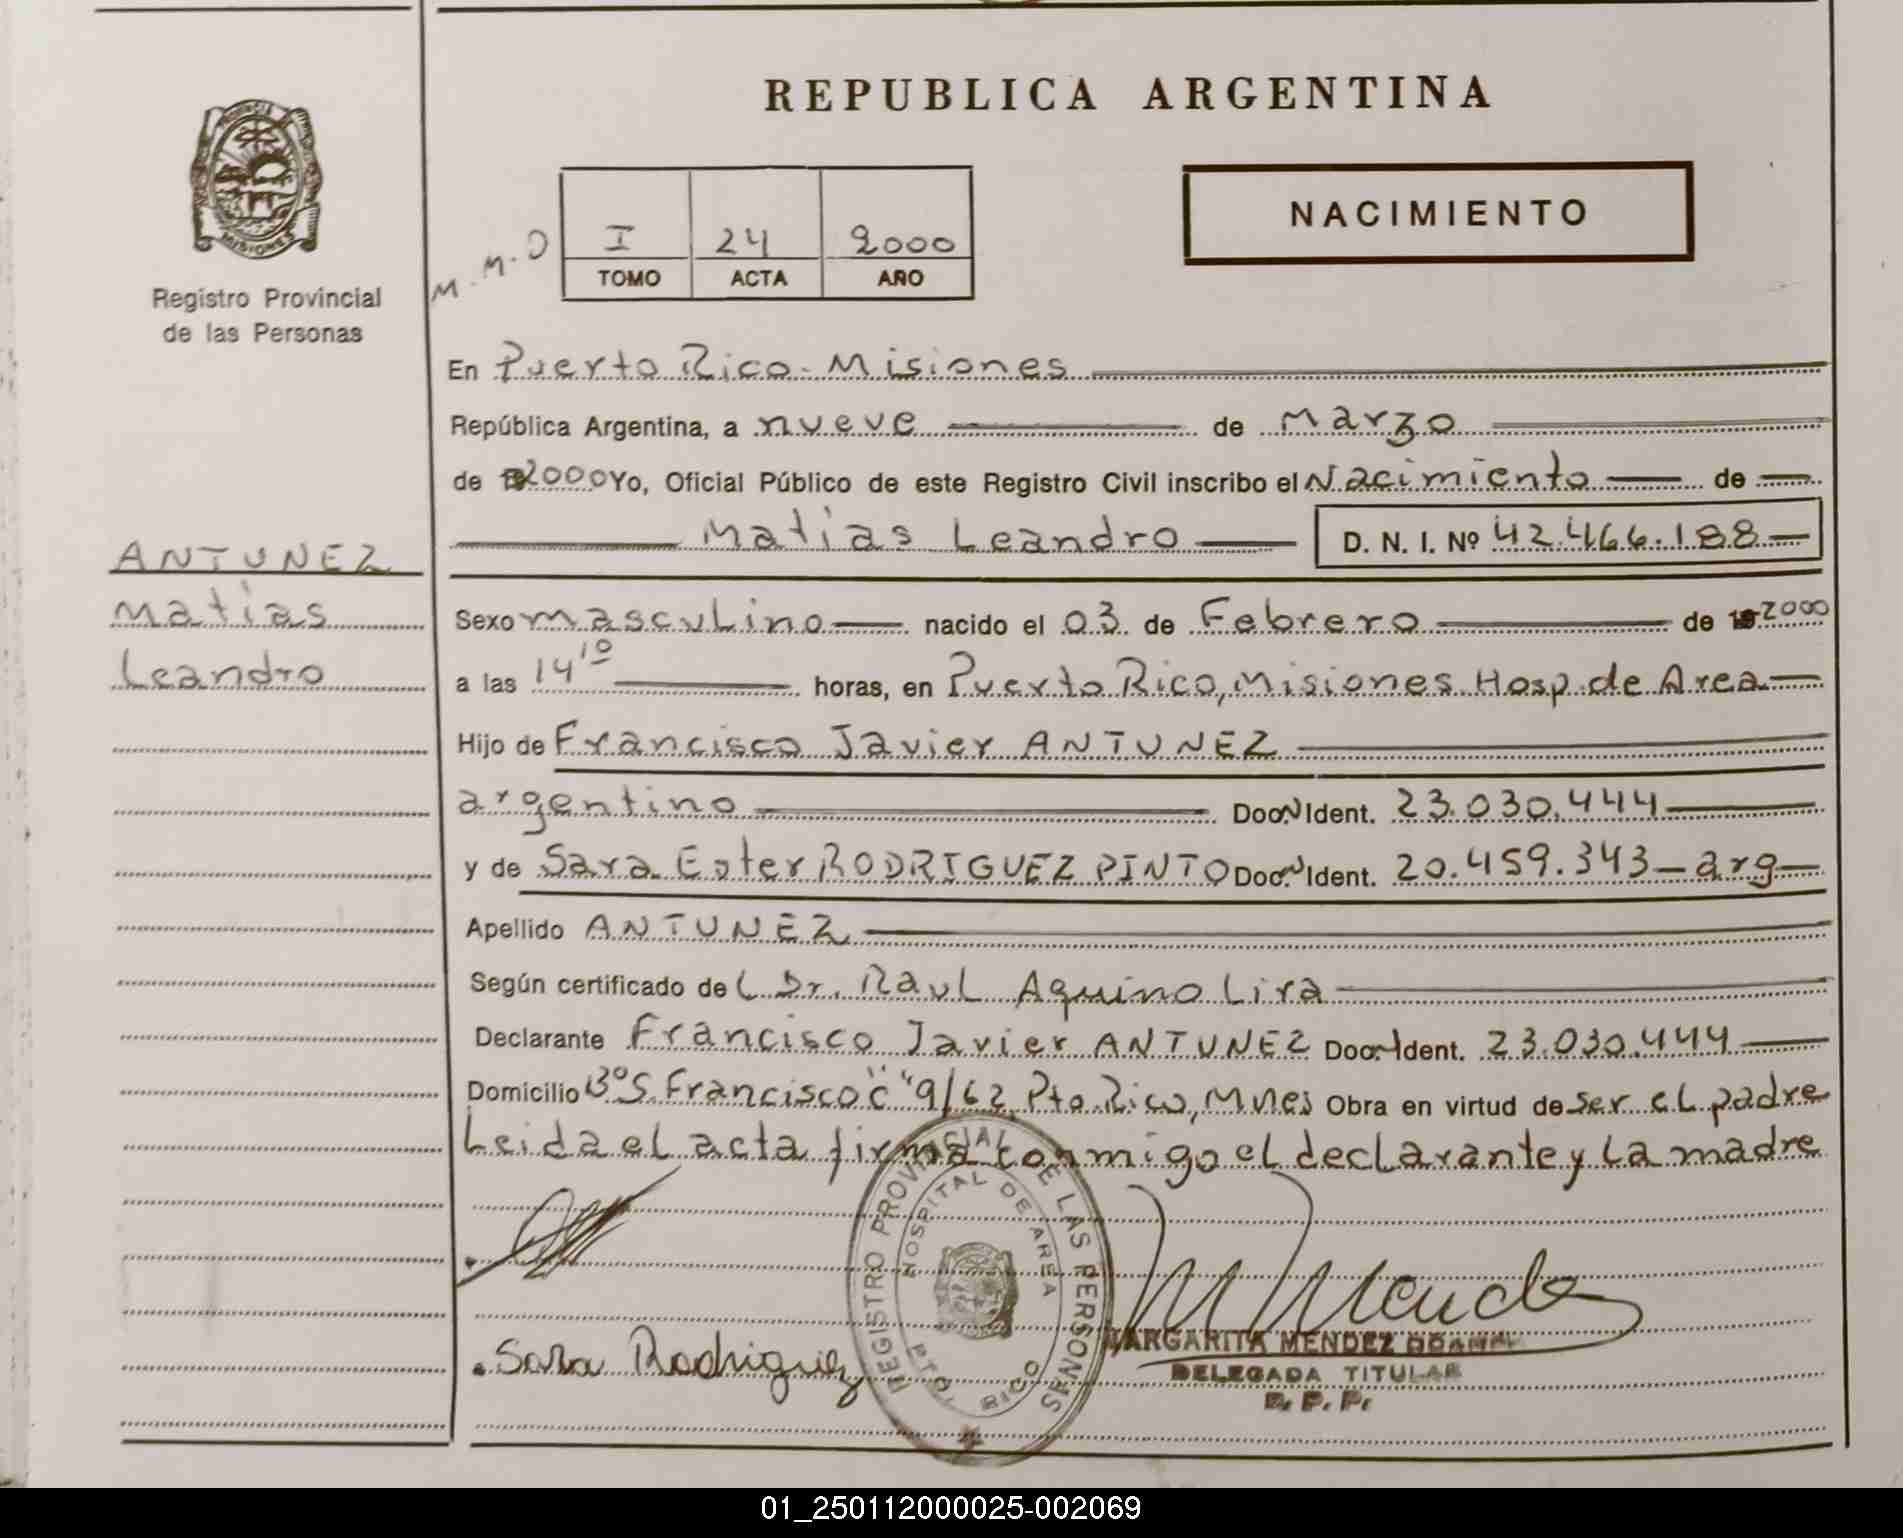 REPUBLICA ARGENTINA
PROVINCIA
MISIONES
Registro Provincial
de las Personas
M.M.D
I 24 2000
TOMO ACTA AÑO
NACIMIENTO
En Puerto Rico - Misiones
República Argentina, a nueve de Marzo
de 2000 Yo, Oficial Público de este Registro Civil inscribo el Nacimiento de
Matias Leandro D. N. I. Nº 42.466.188
ANTUNEZ
Matias
Leandro
Sexo masculino nacido el 03 de Febrero de 2000
a las 14 10 horas, en Puerto Rico, Misiones Hosp. de Area
Hijo de Francisco Javier ANTUNEZ
argentino Doc. N Ident. 23.030.444
y de Sara Ester RODRIGUEZ PINTO Doc. N Ident. 20.459.343 - arg
Apellido ANTUNEZ
Según certificado del Dr. Raul Aquino Lira
Declarante Francisco Javier ANTUNEZ Doc. N Ident. 23.030.444
Domicilio Bº S. Francisco "C" 9/62 Pto Rico, Mnes Obra en virtud de ser el padre
Leida el acta firma conmigo el declarante y la madre
REGISTRO PROVINCIAL DE LAS PERSONAS
HOSPITAL DE AREA
PTO. RICO
Sara Rodriguez
M Mendez
MARGARITA MENDEZ
DELEGADA TITULAR
R. P. P.
01_250112000025-002069